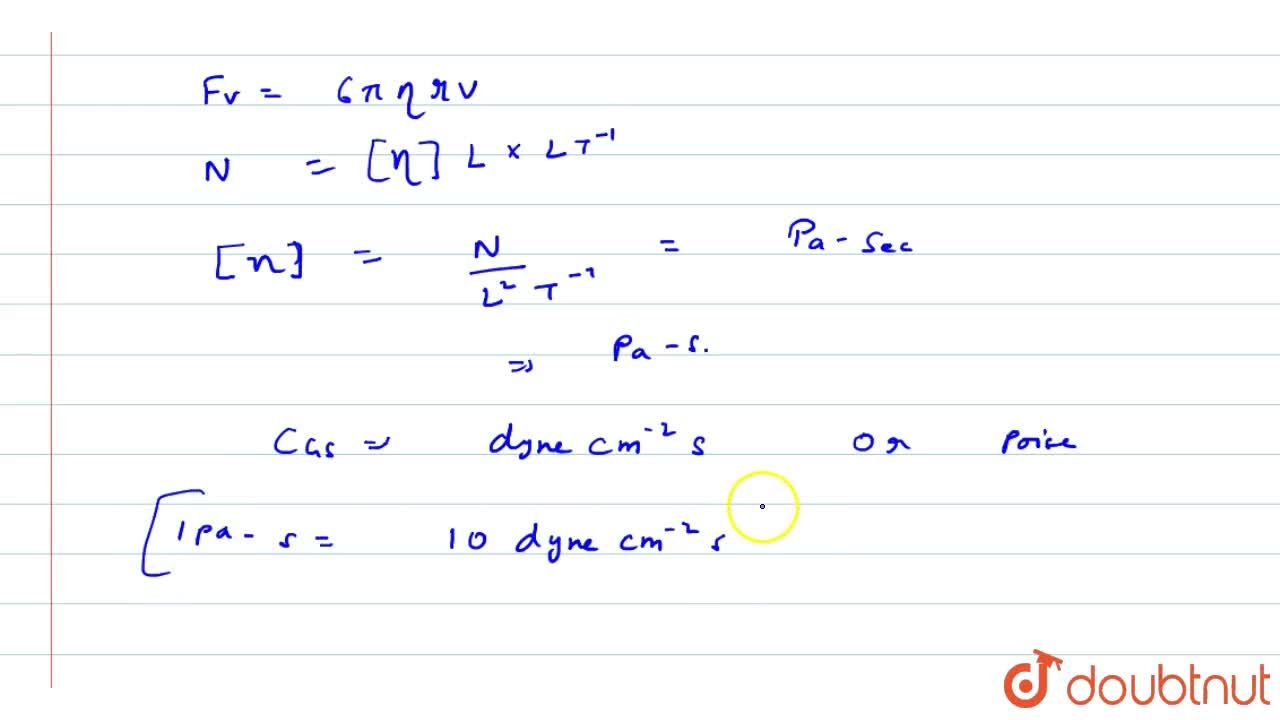 Fv = 6πηrv
N = [η] L × LT⁻¹
[η] = N / L² T⁻¹ = Pa - Sec
⇒ Pa - s.
CGS ⇒ dyne cm⁻² s Or Poise
[ 1 pa - s = 10 dyne cm⁻² s
doubtnut